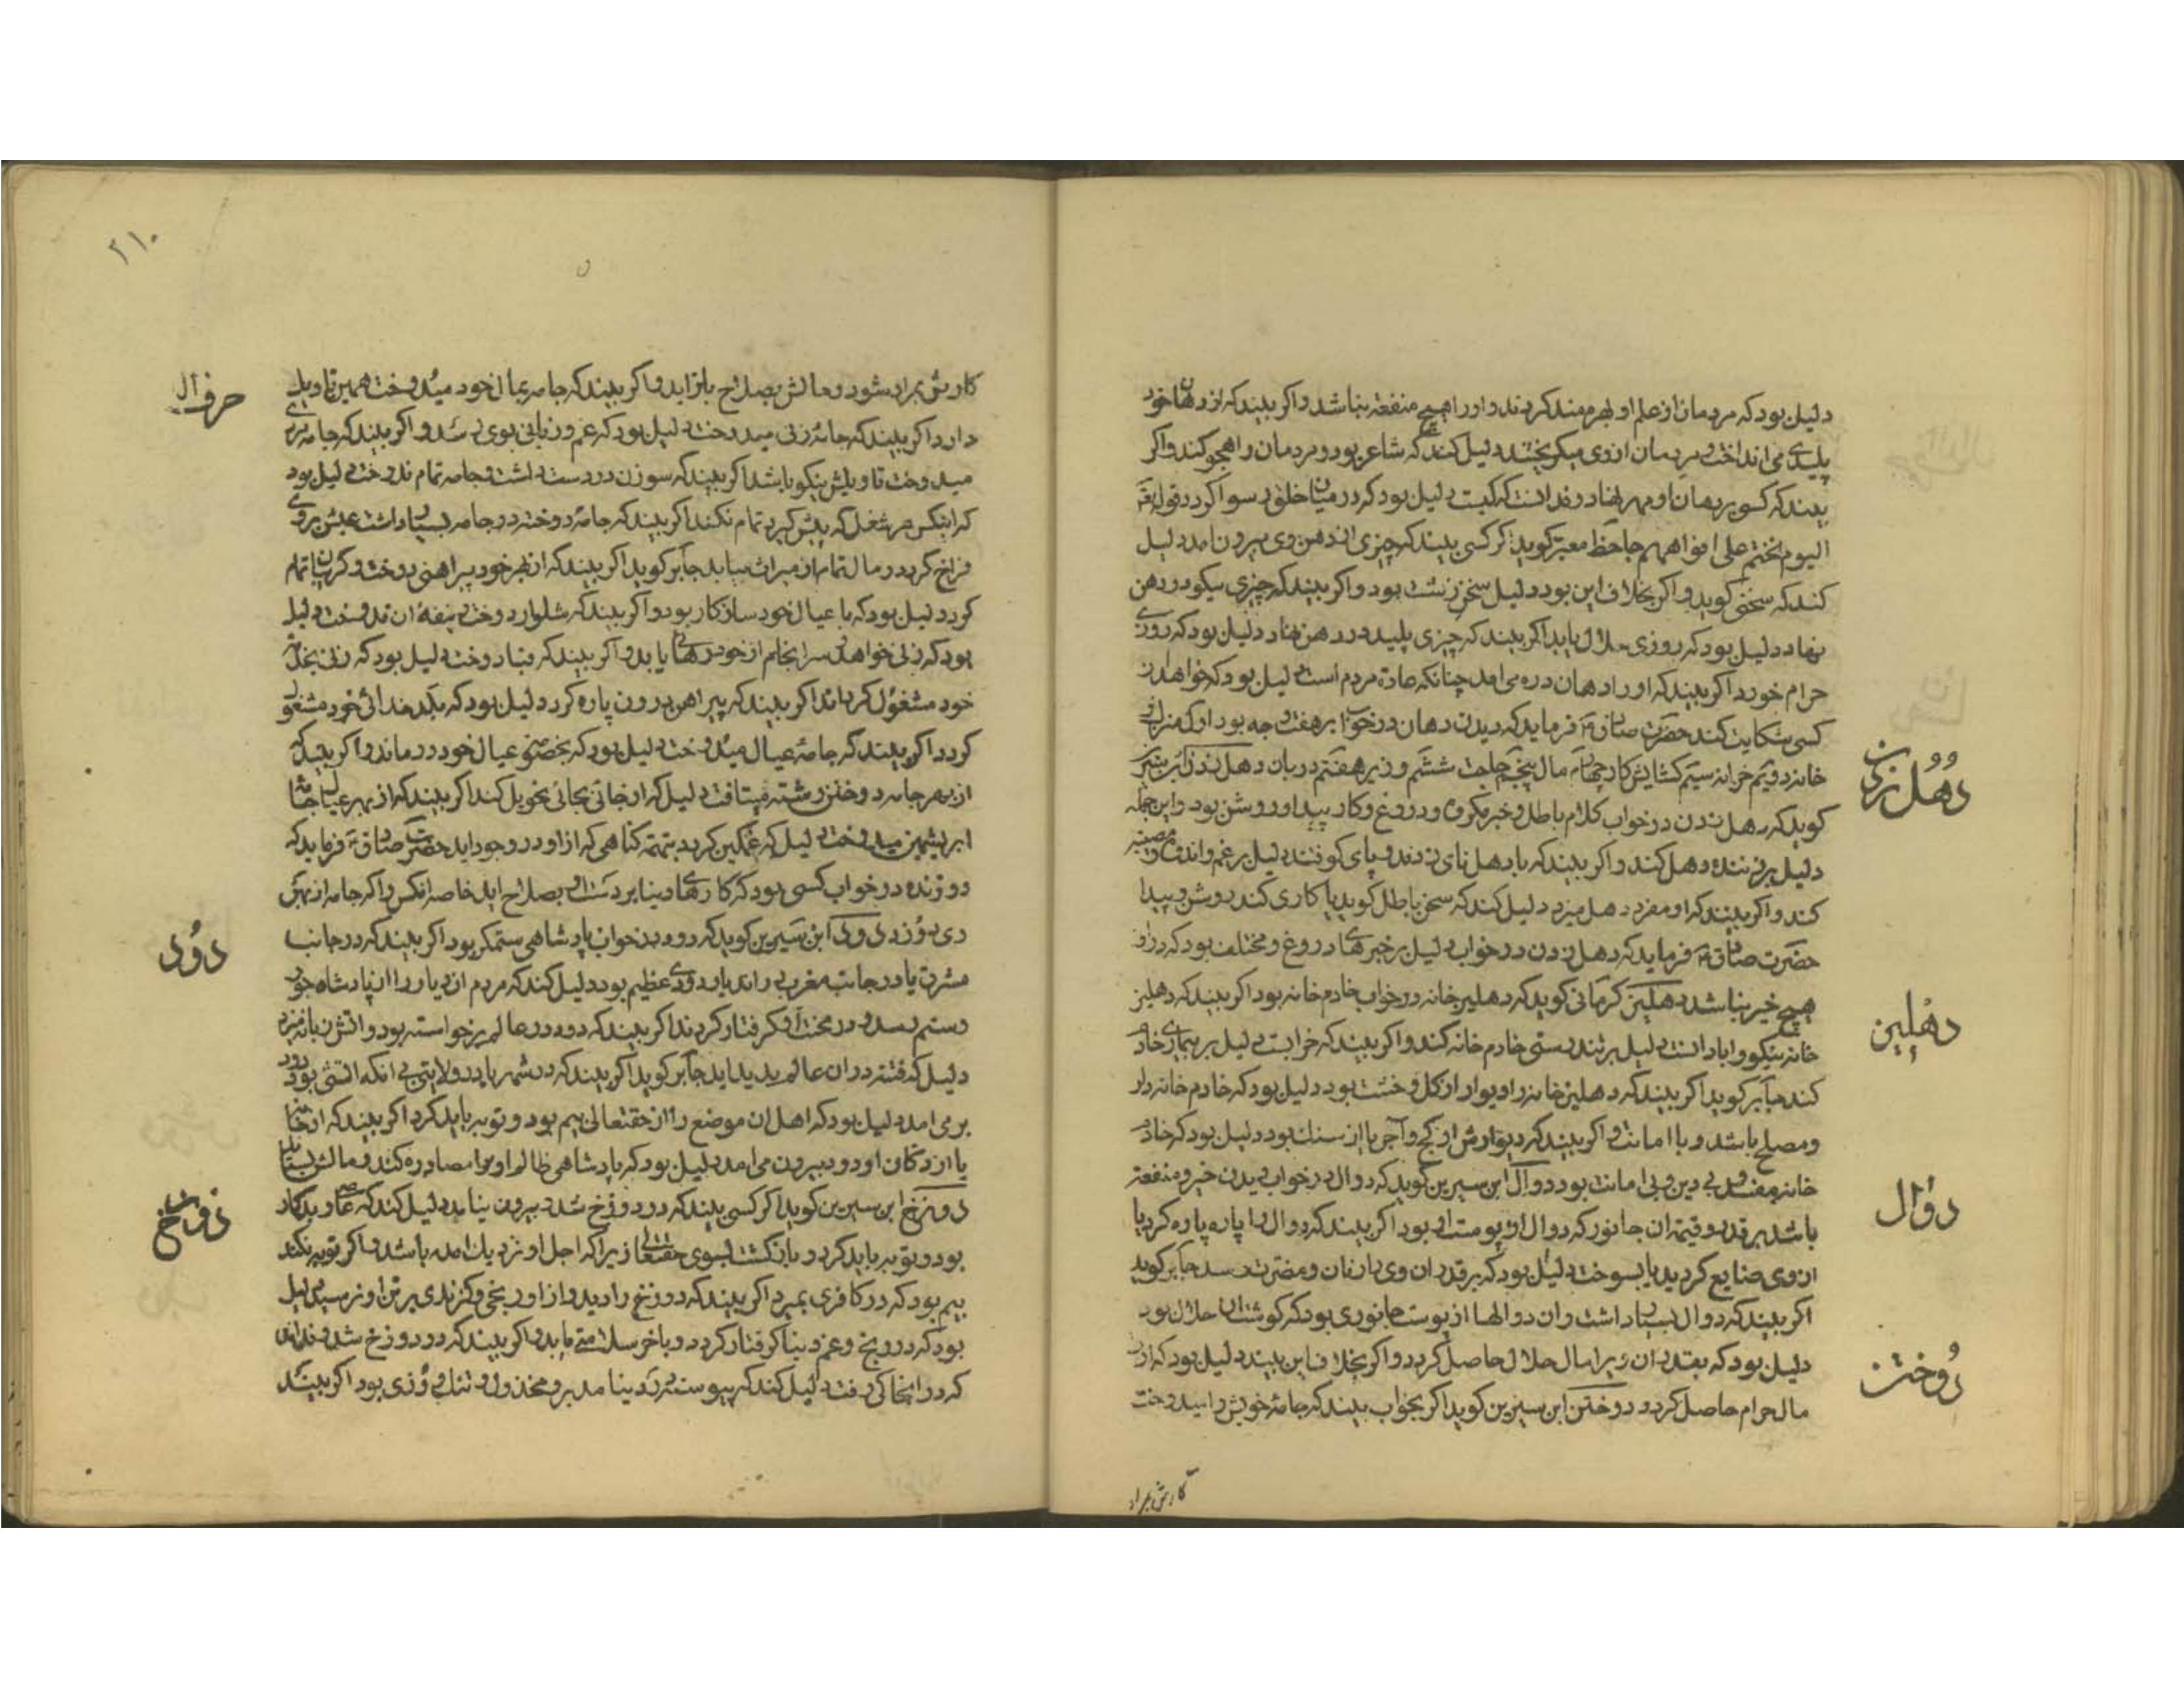 دلیل بود که مردمان از علم او بهره‌مند کردند و او را هیچ منفعة نباشد و اکر بیند که از دهان خود
پلیدی می انداخت و مردمان از وی میکریختند دلیل کند که شاعر بود و مردمان را هجو کند و اکر
بیند که کسی بر دهان او مهر نهاد و ندانست که کیست دلیل بود که در میان خلق رسوا کردد قوله تعه
الیوم نختم علی افواههم جاحظ معبر کوید اکر کسی بیند که چیزی از دهن وی بیرون امد دلیل
کند که سخن کوید و اکر بخلاف این بود دلیل سخن زشت بود و اکر بیند که چیزی نیکو در دهن
نهاد دلیل بود که روزی حلال یابد اکر بیند که چیزی پلید در دهن نهاد دلیل بود که روزی
حرام خورد اکر بیند که او را دهان دره می امد چنانکه عادة مردم است دلیل بود که خواهد از
کسی شکایت کند حضرت صادق فرماید که دیدن دهان در خواب بر هفت وجه بود اول منزل
خانه دویم خزانه سیم کشایش کار چهارم مال پنجم حاجت ششم وزیر هفتم دربان دهل زدن ابن سیرین
کوید که دهل زدن در خواب کلام باطل و خبر مکروه و دروغ و کار پیدا و روشن بود و این جمله
دلیل بر زننده دهل کند و اکر بیند که با دهل نای زدند و پای کوفتند دلیل بر غم و اندوه و مصیبه
کند و اکر بیند که او مفرد دهل میزد دلیل کند که سخن باطل کوید یا کاری کند روشن و پیدا
حضرت صادق فرماید که دهل زدن در خواب دلیل بر خبرهای دروغ و مختلف بود که در او
هیچ خیر نباشد دهلیز کرمانی کوید که دهلیز خانه در خواب خادم خانه بود اکر بیند که دهلیز
خانه نیکو و ابادانست دلیل بر تندرستی خادم خانه کند و اکر بیند که خرابست دلیل بر بیماری خادم
کند جابر کوید اکر بیند که دهلیز خانه را دیوار از کل و خشت بود دلیل بود که خادم خانه دار
و مصلح باشد و با امانت و اکر بیند که دیوارش از کچ و آجر یا از سنک بود دلیل بود که خادم
خانه مفسد و بی دین و بی امانت بود دوال ابن سیرین کوید که دوال در خواب دیدن خیر و منفعة
باشد بر قدر و قیمة ان جانور که دوال از پوست او بود اکر بیند که دوال را پاره پاره کرد یا
از وی ضایع کردید یا بسوخت دلیل بود که بر قدر ان وی را زیان و مضرت رسد جابر کوید
اکر بیند که دوال بسیار داشت و ان دوالها از پوست جانوری بود که کوشت ان حلال بود
دلیل بود که بقدر ان ویرا مال حلال حاصل کردد و اکر بخلاف این بیند دلیل بود که او را
مال حرام حاصل کردد دوختن ابن سیرین کوید اکر بخواب بیند که جامهٔ خویش را میدوخت
دهل زدن
دهلیز
دوال
دوختن
کارش بمراد
۲۱۰
حرف ال
کارش بمراد شود و مالش بصلاح باز اید و اکر بیند که جامه عیال خود میدوخت همین تاویل
دارد اکر بیند که جامهٔ زنی میدوخت دلیل بود که غم و زیانی بوی رسد و اکر بیند که جامه مردی
میدوخت تاویلش نیکو باشد اکر بیند که سوزن در دست داشت و جامه تمام ندوخت دلیل بود
که اینکس هر شغل که پیش کیرد تمام نکند اکر بیند که جامهٔ دوخته در جامه بسیار داشت عیش بر وی
فراخ کردد و مال تمام از میراث بیابد جابر کوید اکر بیند که از بهر خود پیراهنی دوخت و کریبان تمام
کرد دلیل بود که با عیال خود سازکار بود و اکر بیند که شلوار دوخت و نیفهٔ ان ندوخت دلیل
بود که زنی خواهد سرانجام از خود رهای یابد و اکر بیند که قبا دوخت دلیل بود که زنی بخدمت
خود مشغول کرداند اکر بیند که پیراهن درون پاره کرد دلیل بود که بکدخدائی خود مشغول
کردد اکر بیند که جامهٔ عیال میدوخت دلیل بود که بخصومة عیال خود درماند و اکر بیند که
از بهر جامه دوختن رشته میتافت دلیل که از جائی بجائی تحویل کند اکر بیند که از بهر عیال جامهٔ
ابریشمین میدوخت دلیل که غمکین کردد بتهمة کناهی که از او در وجود اید حضرت صادق فرماید که
دوزنده در خواب کسی بود که کارهای دنیا بر دست او بصلاح اید خاصه انکس را که جامه از بهر
وی دوزد دود ابن سیرین کوید که دود در خواب پادشاهی ستمکر بود اکر بیند که در جانب
مشرق یا در جانب مغرب دودی عظیم بود دلیل کند که مردم ان دیار را از پادشاه جور
و ستم رسد و در محنت او کرفتار کردند اکر بیند که دود در عالم برخواسته بود و اتش زبانه میزد
دلیل که فتنه در ان عالم پدید اید جابر کوید اکر بیند که در شهر یا در ولایتی بی انکه اتش بود دود
بر می امد دلیل بود که اهل ان موضع را از حقتعالی بیم بود و توبه باید کرد اکر بیند که از خانه
یا از دکان او دود بیرون می امد دلیل بود که پادشاهی ظالم او را مصادره کند و مالش بستاند
دوزخ ابن سیرین کوید اکر کسی بیند که در دوزخ شد و بیرون نیامد دلیل کند که عاصی و بدکار
بود و توبه باید کرد و بازکشت بسوی حقتعالی زیرا که اجل او نزدیک امده باشد و اکر توبه نکند
بیم بود که در کافری بمیرد اکر بیند که دوزخ را دید و از او رنجی و کزندی بر تن او نرسید دلیل
بود که در رنج و غم دنیا کرفتار کردد و باخر سلامتی یابد و اکر بیند که در دوزخ شد و ندانست
که در انجا کی رفت دلیل کند که پیوسته در دنیا مدبر و مخذول و تنک روزی بود اکر بیند
دود
دوزخ